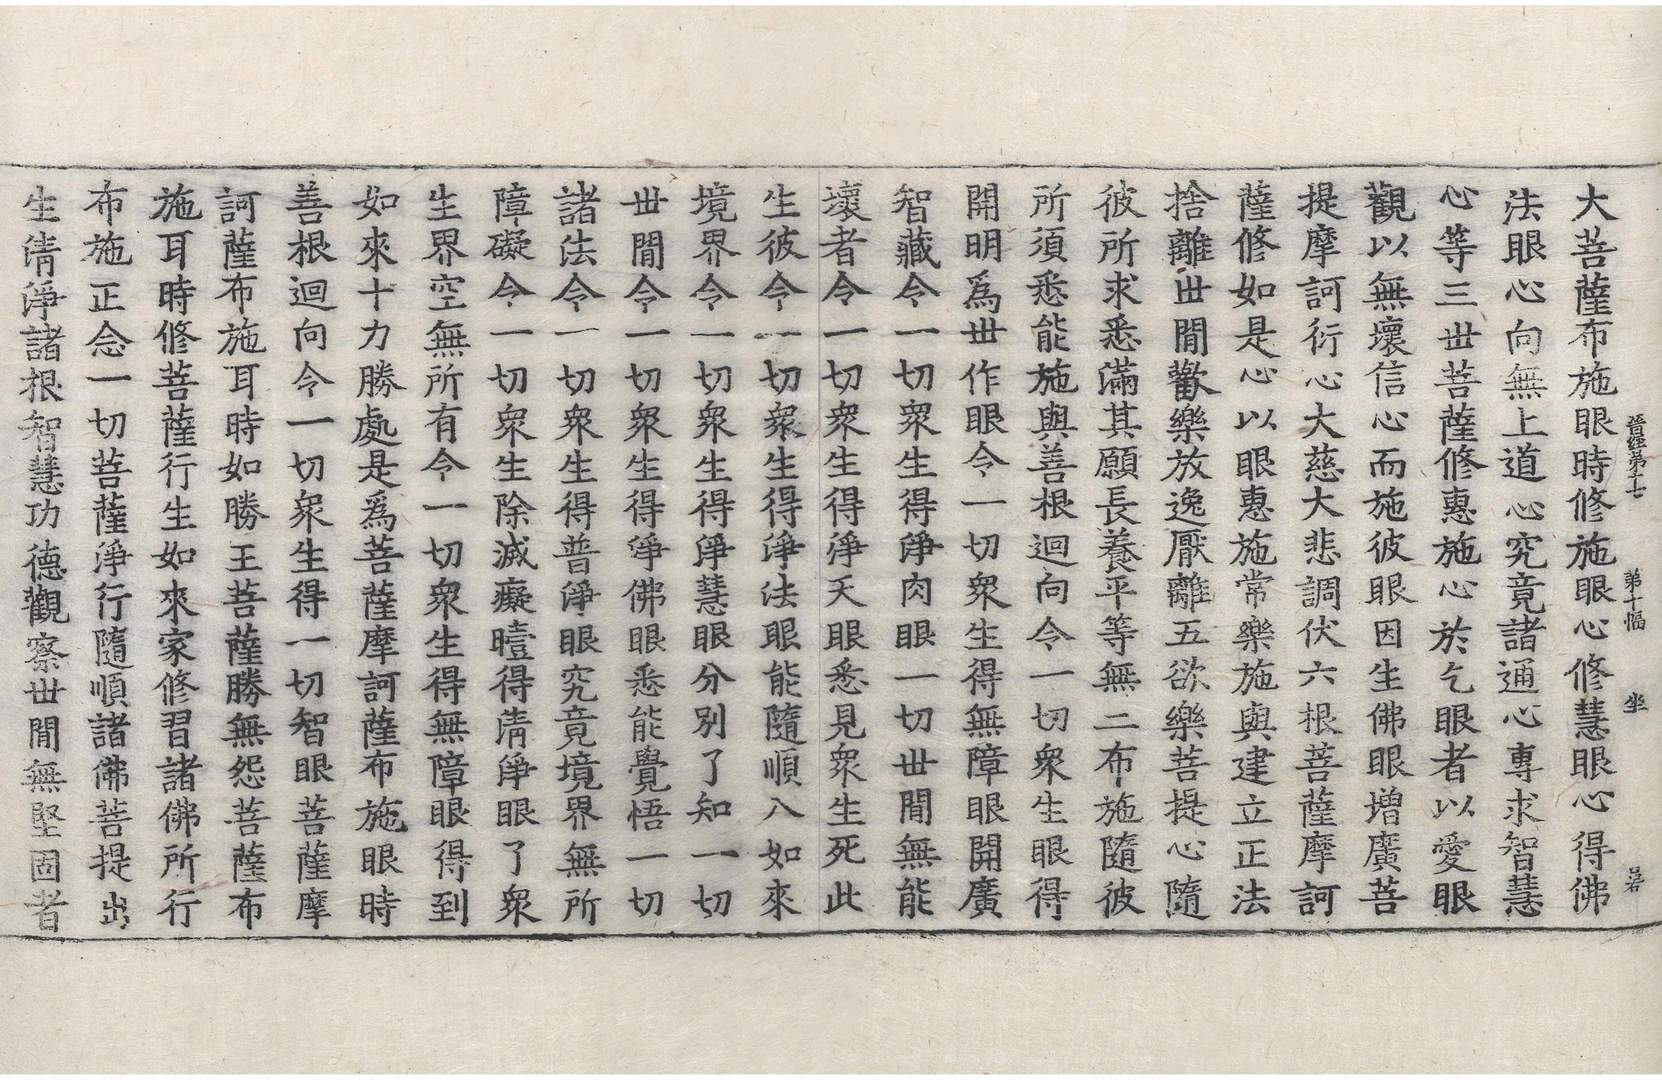 晉經第十七 第十幅 坐
大菩薩布施眼時修施眼心修慧眼心得佛
法眼心向無上道心究竟諸通心專求智慧
心等三世菩薩修惠施心於乞眼者以愛眼
觀以無壞信心而施彼眼因生佛眼增廣菩
提摩訶衍心大慈大悲調伏六根菩薩摩訶
薩修如是心以眼惠施常樂施與建立正法
捨離世間歡樂放逸厭離五欲樂菩提心隨
彼所求悉滿其願長養平等無二布施隨彼
所須悉能施與善根迴向令一切衆生眼得
開明爲世作眼令一切衆生得無障眼開廣
智藏令一切衆生得淨肉眼一切世間無能
壞者令一切衆生得淨天眼悉見衆生死此
生彼令一切衆生得淨法眼能隨順入如來
境界令一切衆生得淨慧眼分別了知一切
世間令一切衆生得淨佛眼悉能覺悟一切
諸法令一切衆生得普淨眼究竟境界無所
障礙令一切衆生除滅癡曀得清淨眼了衆
生界空無所有令一切衆生得無障眼得到
如來十力勝處是爲菩薩摩訶薩布施眼時
善根迴向令一切衆生得一切智眼菩薩摩
訶薩布施耳時如勝王菩薩勝無怨菩薩布
施耳時修菩薩行生如來家修習諸佛所行
布施正念一切菩薩淨行隨順諸佛菩提出
生清淨諸根智慧功德觀察世間無堅固者